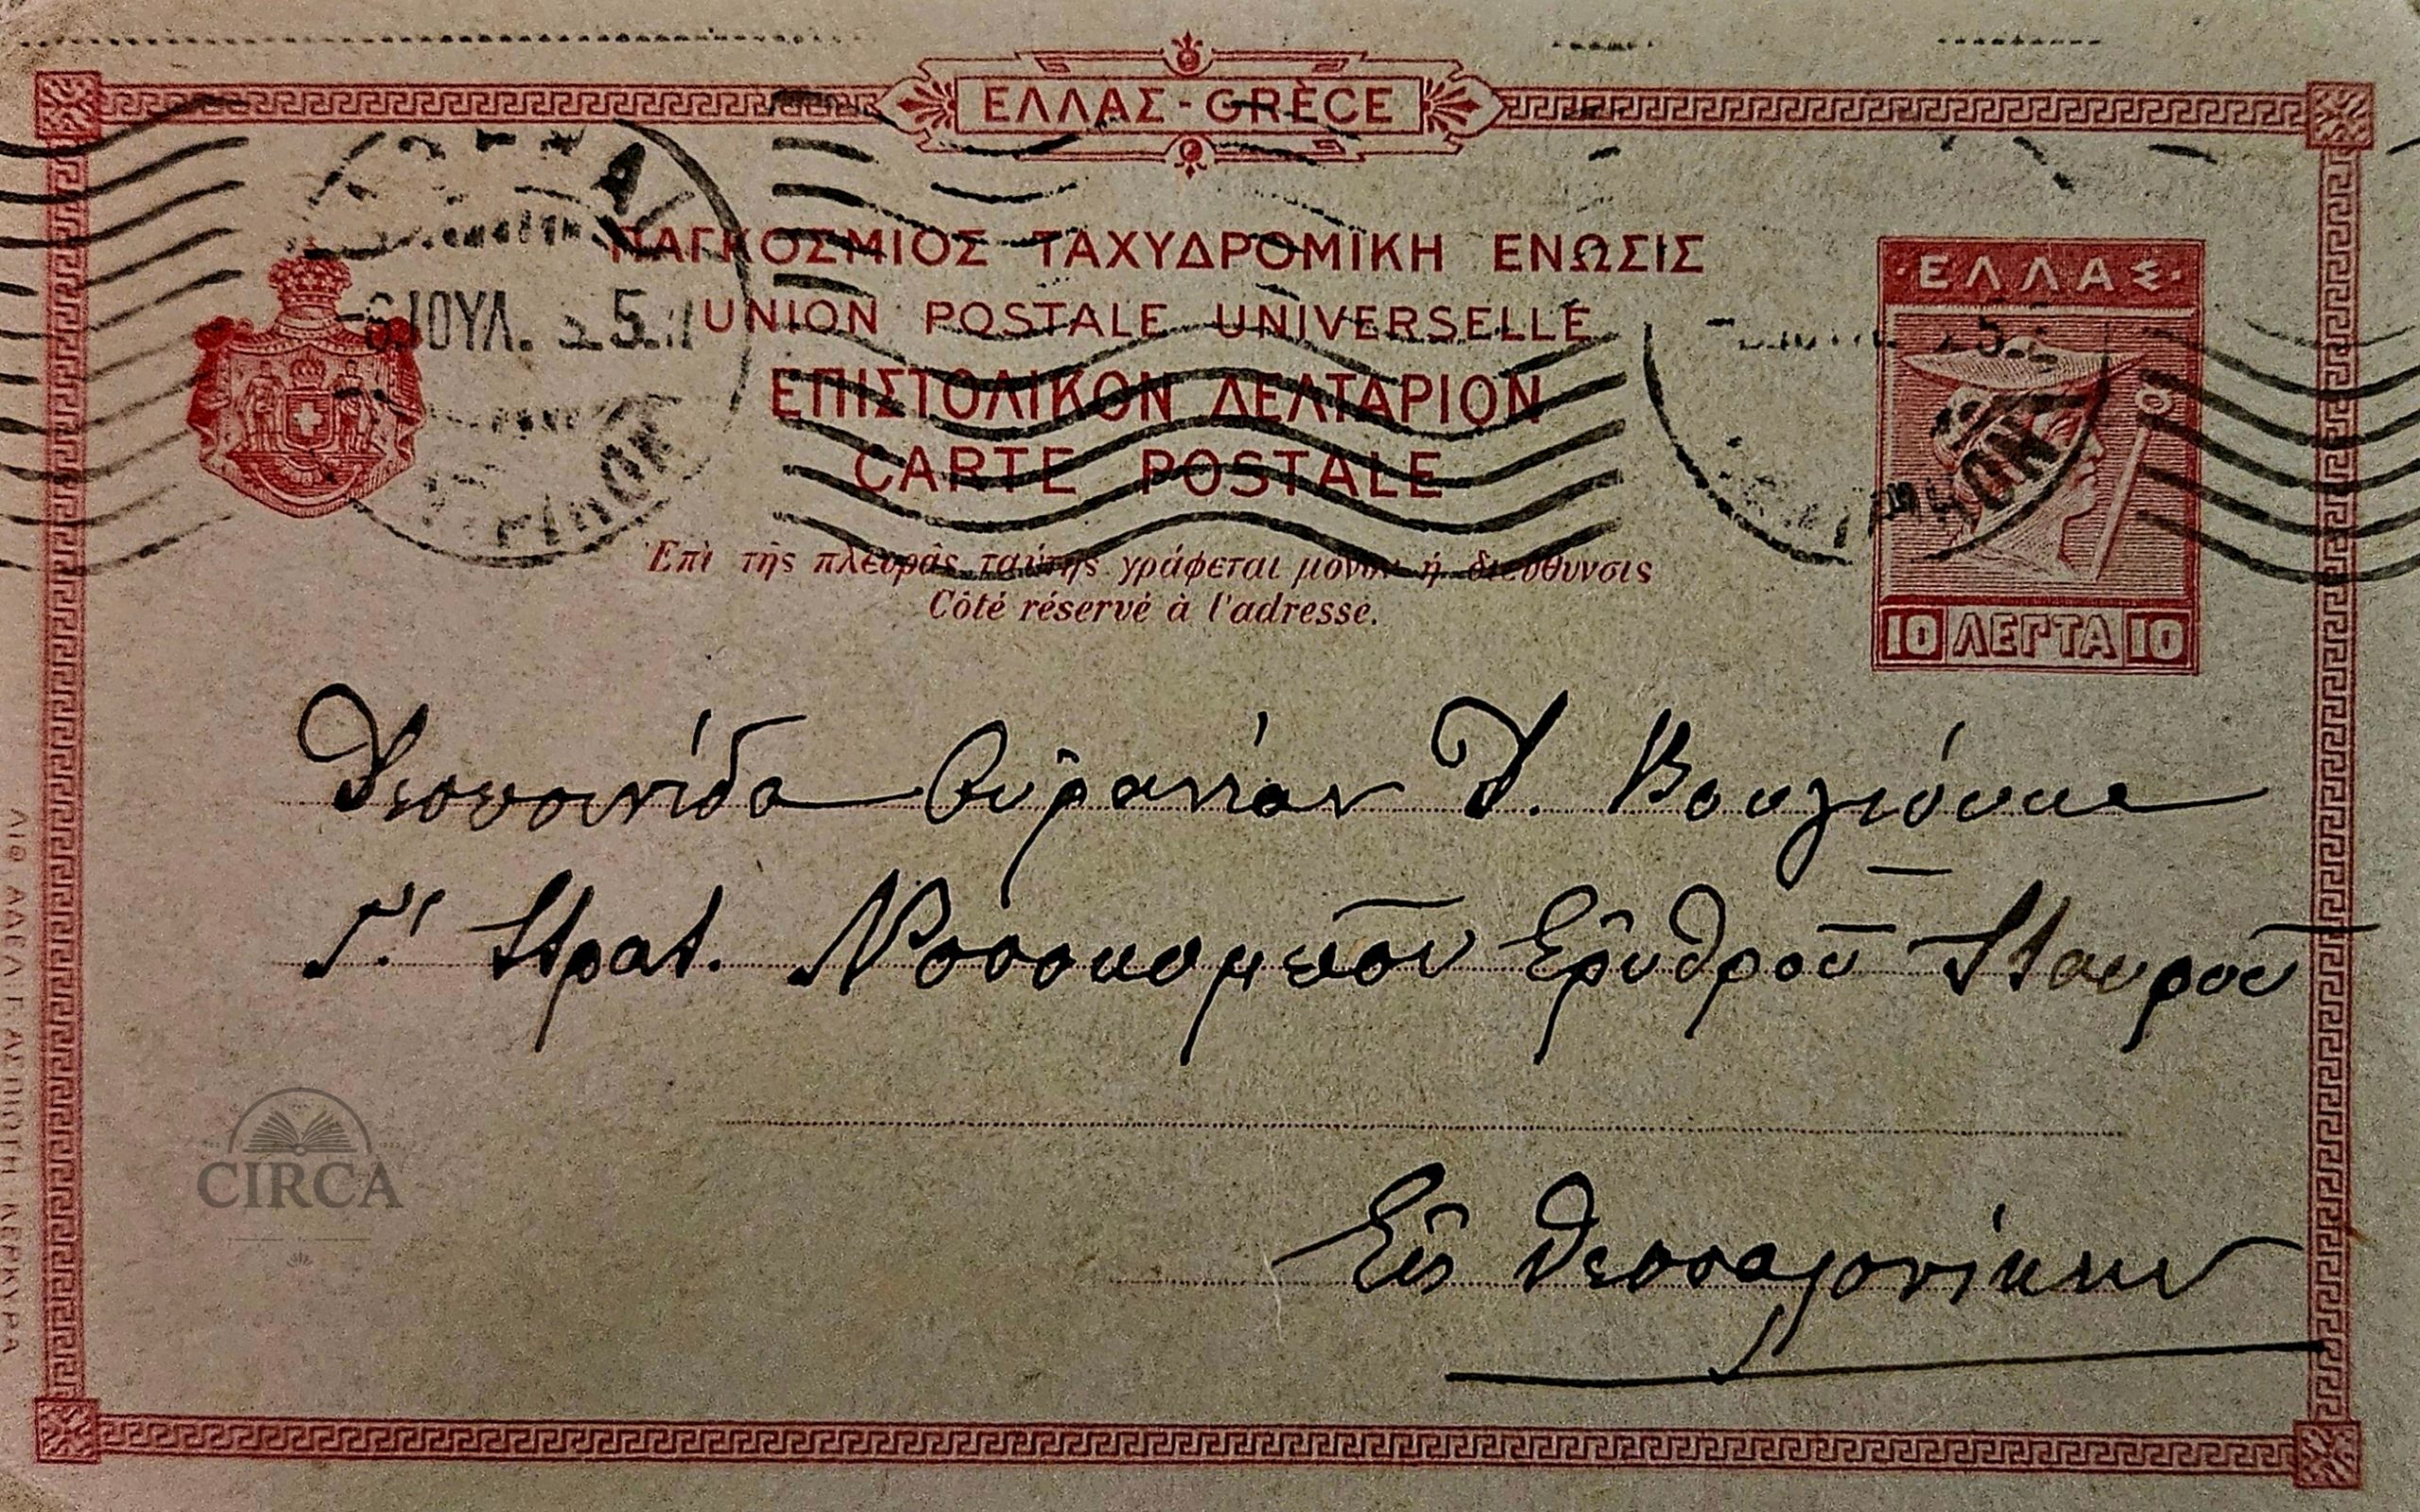 ΕΛΛΑΣ - GRÈCE
ΠΑΓΚΟΣΜΙΟΣ ΤΑΧΥΔΡΟΜΙΚΗ ΕΝΩΣΙΣ
UNION POSTALE UNIVERSELLE
ΕΠΙΣΤΟΛΙΚΟΝ ΔΕΛΤΑΡΙΟΝ
CARTE POSTALE
Ἐπὶ τῆς πλευρᾶς ταύτης γράφεται μόνον ἡ διεύθυνσις
Côté réservé à l'adresse.
·ΕΛΛΑΣ·
10 ΛΕΠΤΑ 10
6 ΙΟΥΛ. 5
Δεσποινίδα Οὐρανίαν Δ. Βουγιούκα
Γ' Στρατ. Νοσοκομεῖον Ἐρυθροῦ Σταυροῦ
Εἰς Θεσσαλονίκην
CIRCA
ΚΕΡΚΥΡΑ